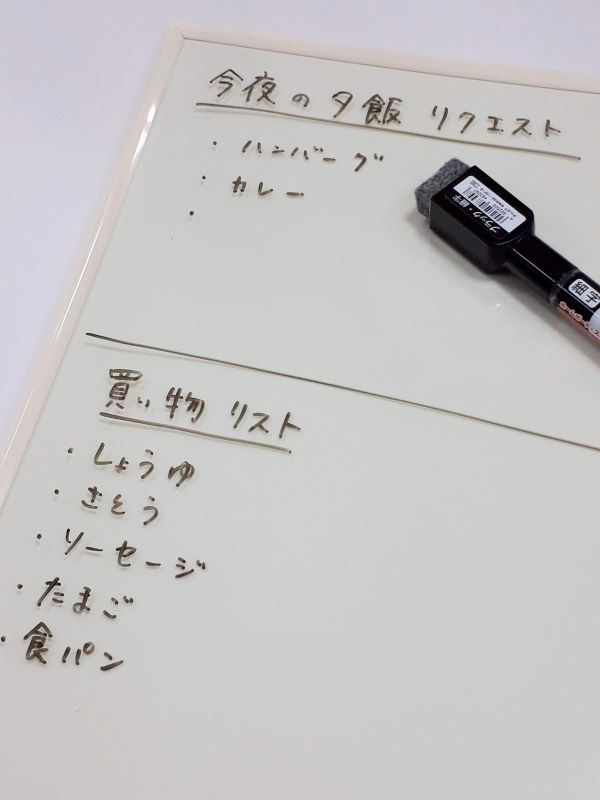 今夜の夕飯 リクエスト
・ハンバーグ
・カレー
・
ブラック・細字
細字
買い物リスト
・しょうゆ
・さとう
・ソーセージ
・たまご
・食パン